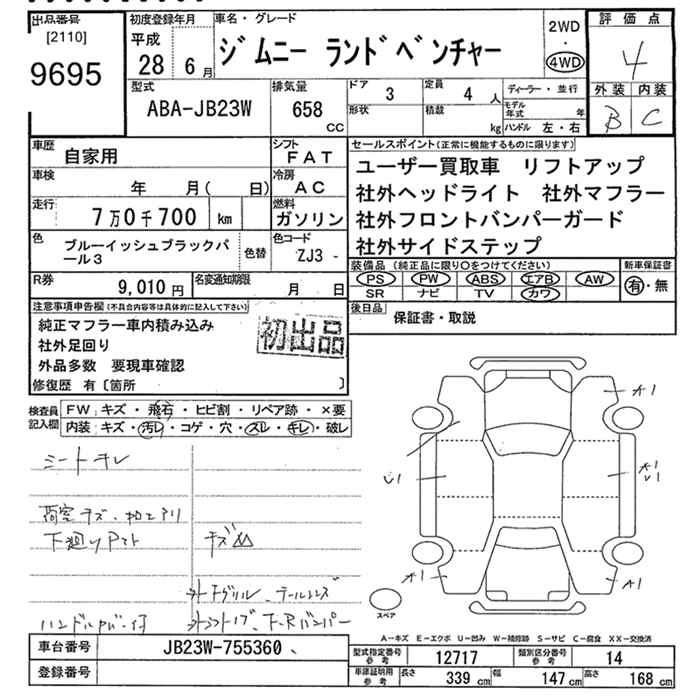 出品番号
[2110]
9695
初度登録年月
平成
28 6月
車名・グレード
ジムニー ランドベンチャー
2WD
・
4WD
評価点
4
外装 内装
B C
型式
ABA-JB23W
排気量
658
CC
ドア
3
形状
定員
4 人
積載
kg
ディーラー・並行
モデル年式 年
ハンドル 左・右
車歴
自家用
シフト
FAT
車検
年 月( 日)
冷房
AC
走行
7万0千700 km
燃料
ガソリン
色
ブルーイッシュブラックパール3
色替
色コード
ZJ3 -
R券
9,010円
名変通知期限
月 日
セールスポイント(正常に機能するものに限ります)
ユーザー買取車 リフトアップ
社外ヘッドライト 社外マフラー
社外フロントバンパーガード
社外サイドステップ
装備品(純正品に限り○をつけてください)
PS PW ABS エアB AW
SR ナビ TV カワ
新車保証書
有・無
後日品
保証書・取説
注意事項申告欄(不具合内容等は具体的に記入して下さい)
純正マフラー車内積み込み
社外足回り
外品多数 要現車確認
修復歴 有〔箇所 〕
初出品
検査員記入欄
FW:キズ・飛石・ヒビ割・リペア跡・×要
内装:キズ・汚レ・コゲ・穴・スレ・キレ・破レ
シートキレ
荷室キズ・加工アリ
下廻りPマト
キズ凹
ハンドルカバー付
外Fグリル、テールレンズ
A1
U1
A1
U1
A1
A1
スペア
A-キズ E-エクボ U-凹み W-補修跡 S-サビ C-腐食 XX-交換済
車台番号
JB23W-755360
登録番号
型式指定番号 参考
12717
類別区分番号 参考
14
車庫証明用 参考
長さ 339cm
幅 147cm
高さ 168cm